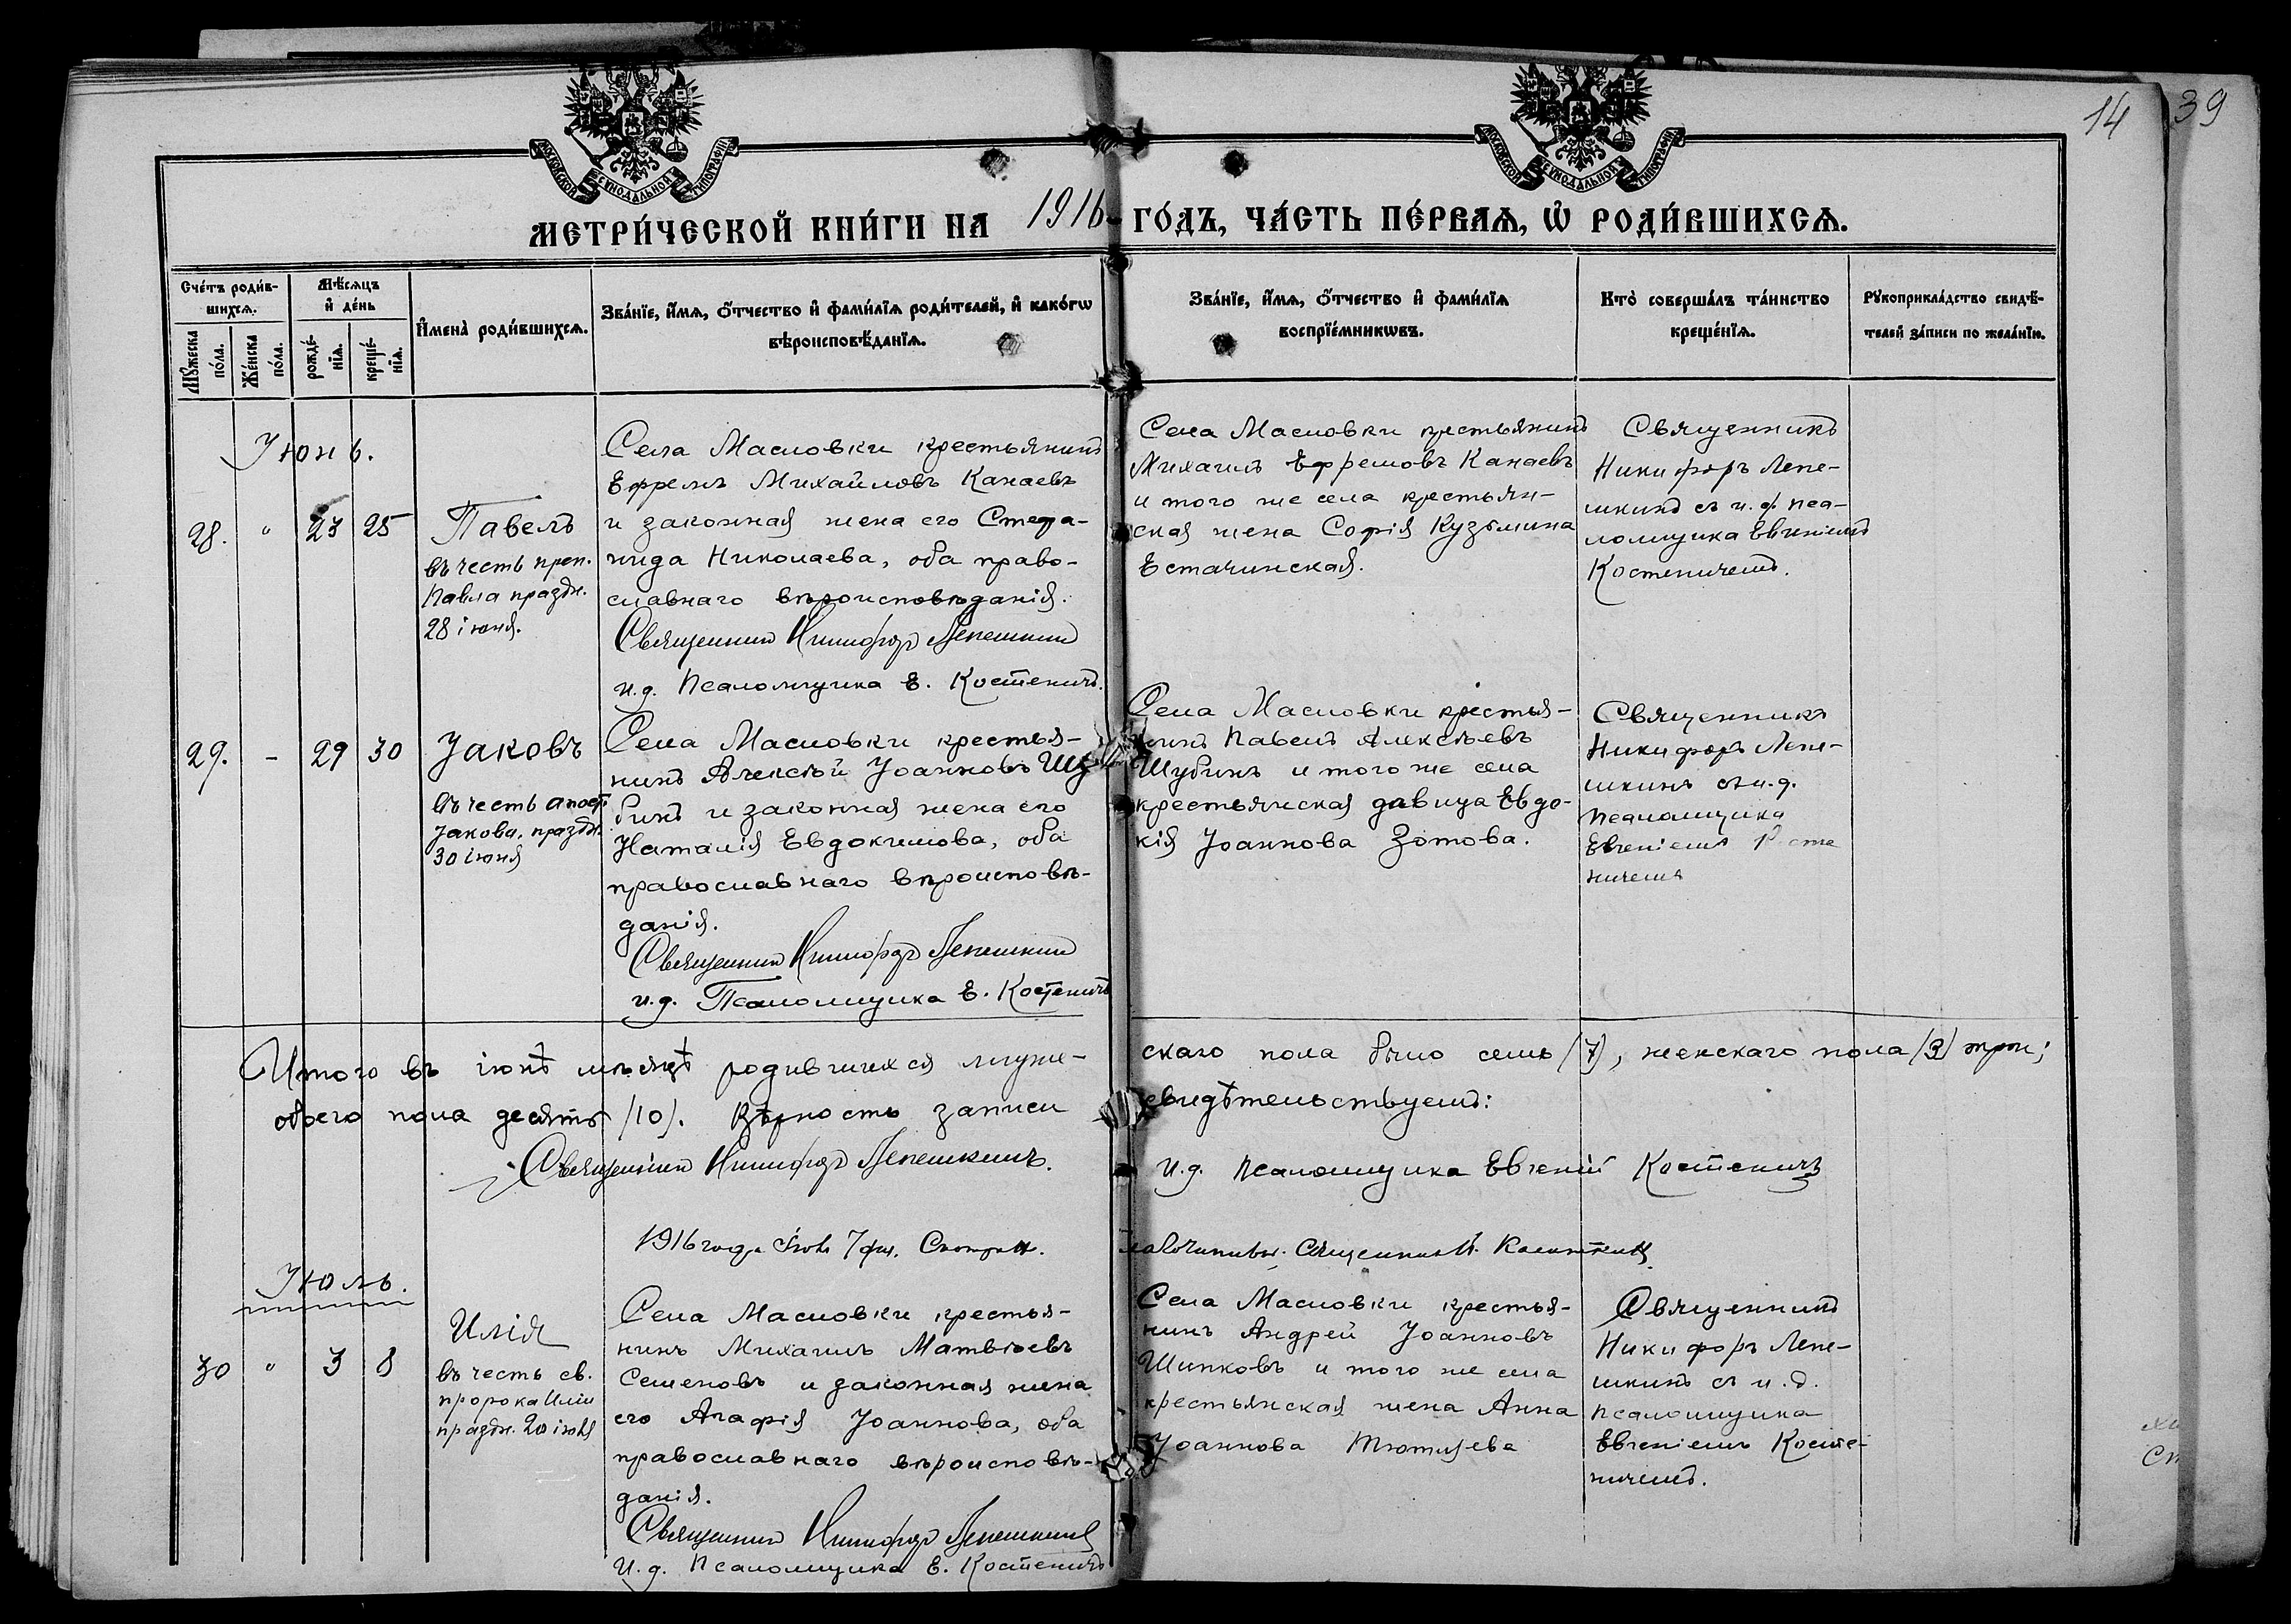 14
39
МОСКОВСКОЙ СѴНОДАЛЬНОЙ ТИПОГРАФІИ
МОСКОВСКОЙ СѴНОДАЛЬНОЙ ТИПОГРАФІИ
МЕТРИ́ЧЕСКОЙ КНИ́ГИ НА 1916 ГО́ДЪ, ЧА́СТЬ ПЕ́РВАѦ, Ѡ҆ РОДИ́ВШИХСѦ.
Сче́тъ роди́в-
шихсѧ.
Мꙋ́жеска
по́ла.
Же́нска
по́ла.
Мѣ́сѧцъ
и҆ де́нь
рожде́-
нїѧ.
креще́-
нїѧ.
И҆мена̀ роди́вшихсѧ.
Зва́нїе, и҆́мѧ, ѻ҆́тчество и҆ фами́лїѧ роди́телей, и҆ како́гѡ
вѣроисповѣ́данїѧ.
Зва́нїе, и҆́мѧ, ѻ҆́тчество и҆ фами́лїѧ
воспрїе́мникѡвъ.
Кто̀ соверша́лъ та́инство
креще́нїѧ.
Рꙋкоприкла́дство свидѣ́-
телей за́писи по жела́нїю.
Іюнь.
28. " 23 25
Павелъ
въ честь преп.
Павла праздн.
28 іюня.
Села Масловки крестьянинъ
Ефремъ Михайловъ Канаевъ
и законная жена его Стефа-
нида Николаева, оба право-
славнаго вѣроисповѣданія.
Священникъ Никифоръ Лепешкинъ
и.д. Псаломщика Е. Костеничъ.
Села Масловки крестьянинъ
Михаилъ Ефремовъ Канаевъ
и того же села крестьян-
ская жена Софія Кузьмина
Естачинская.
Священникъ
Никифоръ Лепе-
шкинъ съ и. д. пса-
ломщика Евгеніемъ
Костеничемъ.
29. - 29 30
Іаковъ
въ честь апост.
Іакова, праздн.
30 іюня
Села Масловки крестья-
нинъ Алексѣй Іоанновъ Шу-
бинъ и законная жена его
Наталія Евдокимова, оба
православнаго вѣроисповѣ-
данія.
Священникъ Никифоръ Лепешкинъ
и.д. Псаломщика Е. Костеничъ
Села Масловки крестья-
нинъ Павелъ Алексѣевъ
Шубинъ и того же села
крестьянская дѣвица Евдо-
кія Іоаннова Зотова.
Священникъ
Никифоръ Лепе-
шкинъ съ и.д.
псаломщика
Евгеніемъ Косте
ничемъ
Итого въ іюнѣ мѣсяцѣ родившихся муже-
скаго пола было семь /7/, женскаго пола /3/ три;
обоего пола десять /10/. Вѣрность записи
свидѣтельствуемъ:
Священникъ Никифоръ Лепешкинъ.
и.д. псаломщика Евгеній Костеничъ
1916 года 7 дня.
Іюль.
30 " 3 8
Илія
въ честь св.
пророка Иліи
праздн. 20 іюля
Села Масловки крестья-
нинъ Михаилъ Матвѣевъ
Семеновъ и законная жена
его Агафія Іоаннова, оба
православнаго вѣроисповѣ-
данія.
Священникъ Никифоръ Лепешкинъ
И.д. Псаломщика Е. Костеничъ
Села Масловки крестья-
нинъ Андрей Іоанновъ
Шипковъ и того же села
крестьянская жена Анна
Іоаннова
Священникъ
Никифоръ Лепе-
шкинъ съ и.д.
псаломщика
Евгеніемъ Косте-
ничемъ.